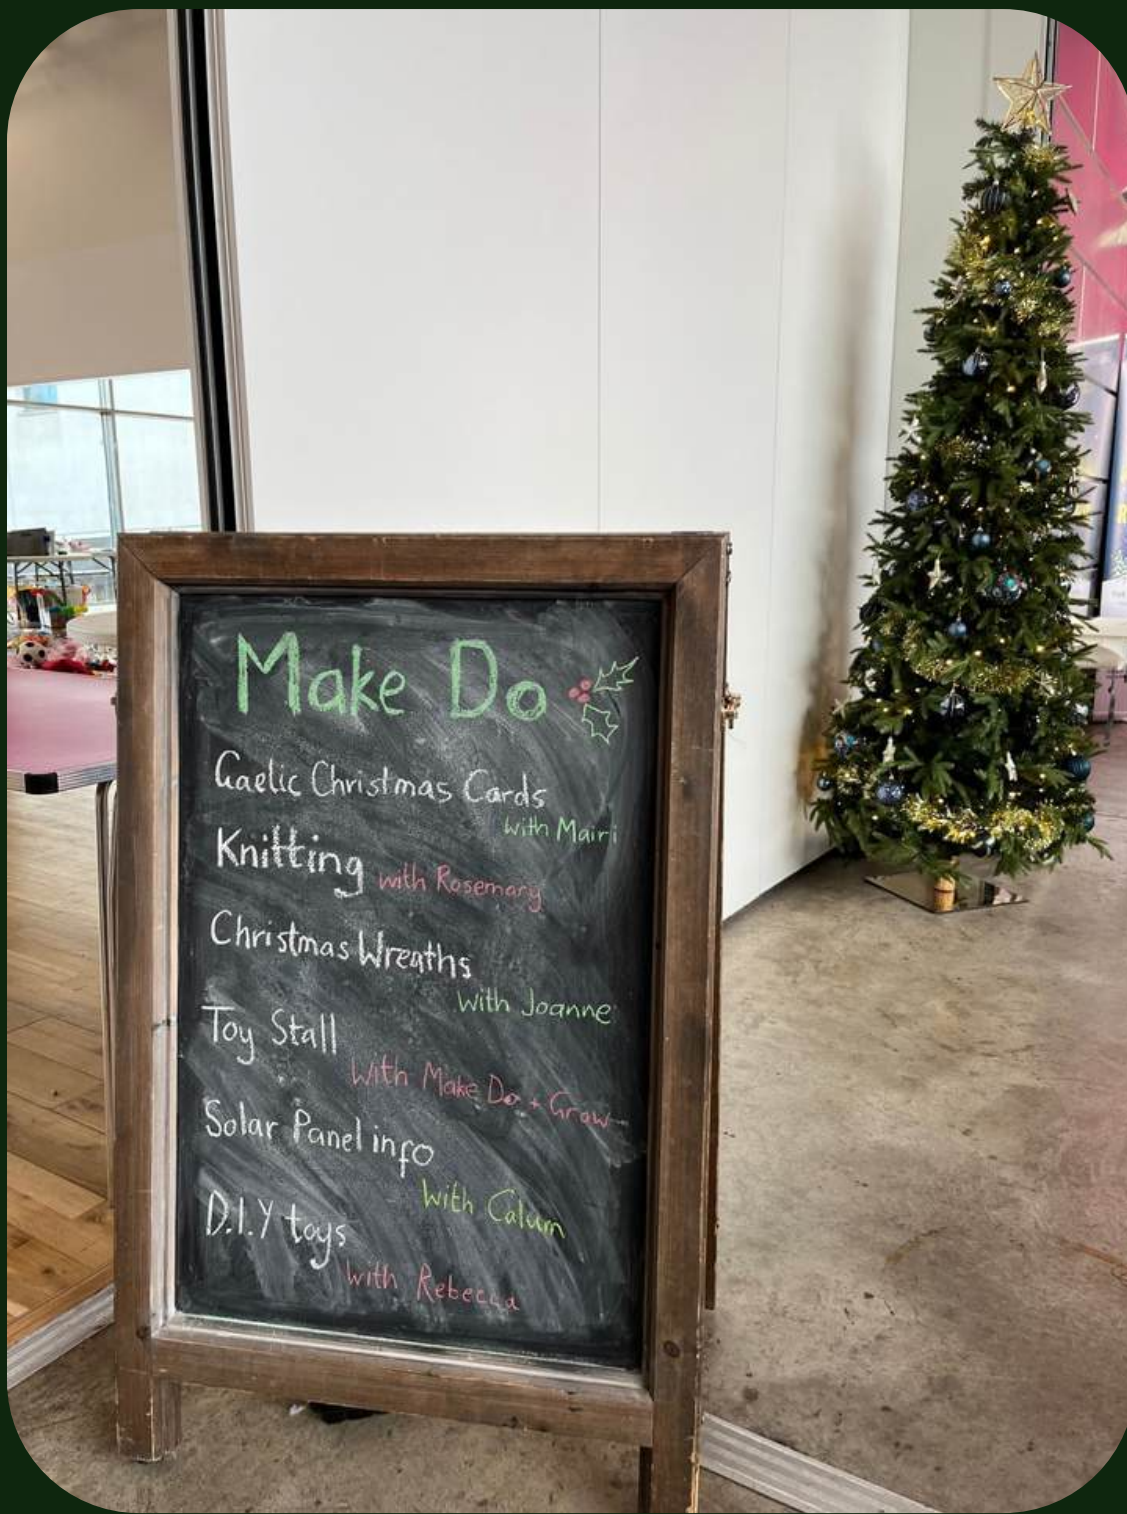 Make Do
Gaelic Christmas Cards
with Mairi
Knitting with Rosemary
Christmas Wreaths
with Joanne
Toy Stall
with Make Do + Grow
Solar Panel info
with Calum
D.I.Y toys
with Rebecca